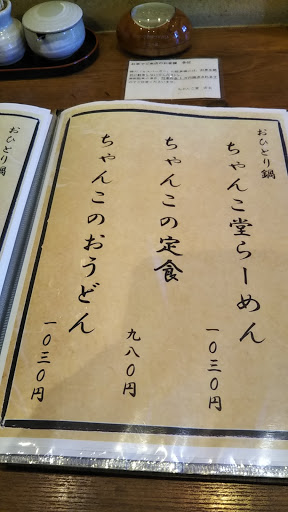 おひとり鍋
ちゃんこ堂らーめん
一〇三〇円
ちゃんこの定食
九八〇円
ちゃんこのおうどん
一〇三〇円
おひとり鍋